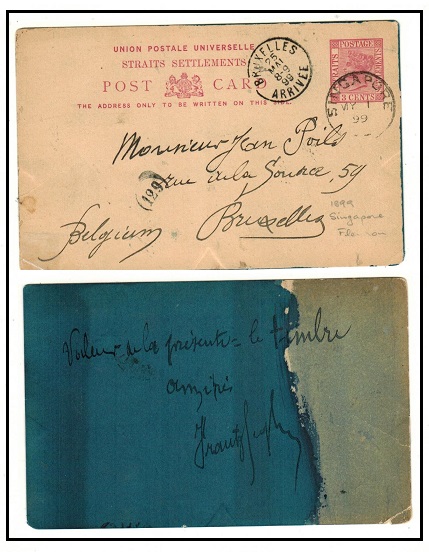 UNION POSTALE UNIVERSELLE
STRAITS SETTLEMENTS
POST CARD
THE ADDRESS ONLY TO BE WRITTEN ON THIS SIDE.
BRUXELLES
25
MAI
8-9
99
ARRIVÉE
POSTAGE
STRAITS
3 CENTS
SINGAPORE
MY 1
99
Monsieur Jean Poils
rue de la Source, 59
(129)
Bruxelles
Belgium
1899
Singapore
Valeur de la présente = le timbre